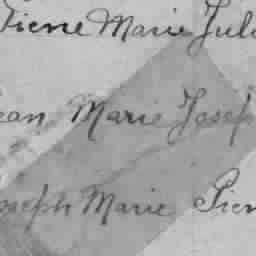 Pierre Marie Jule
Jean Marie Josep
Joseph Marie Pier